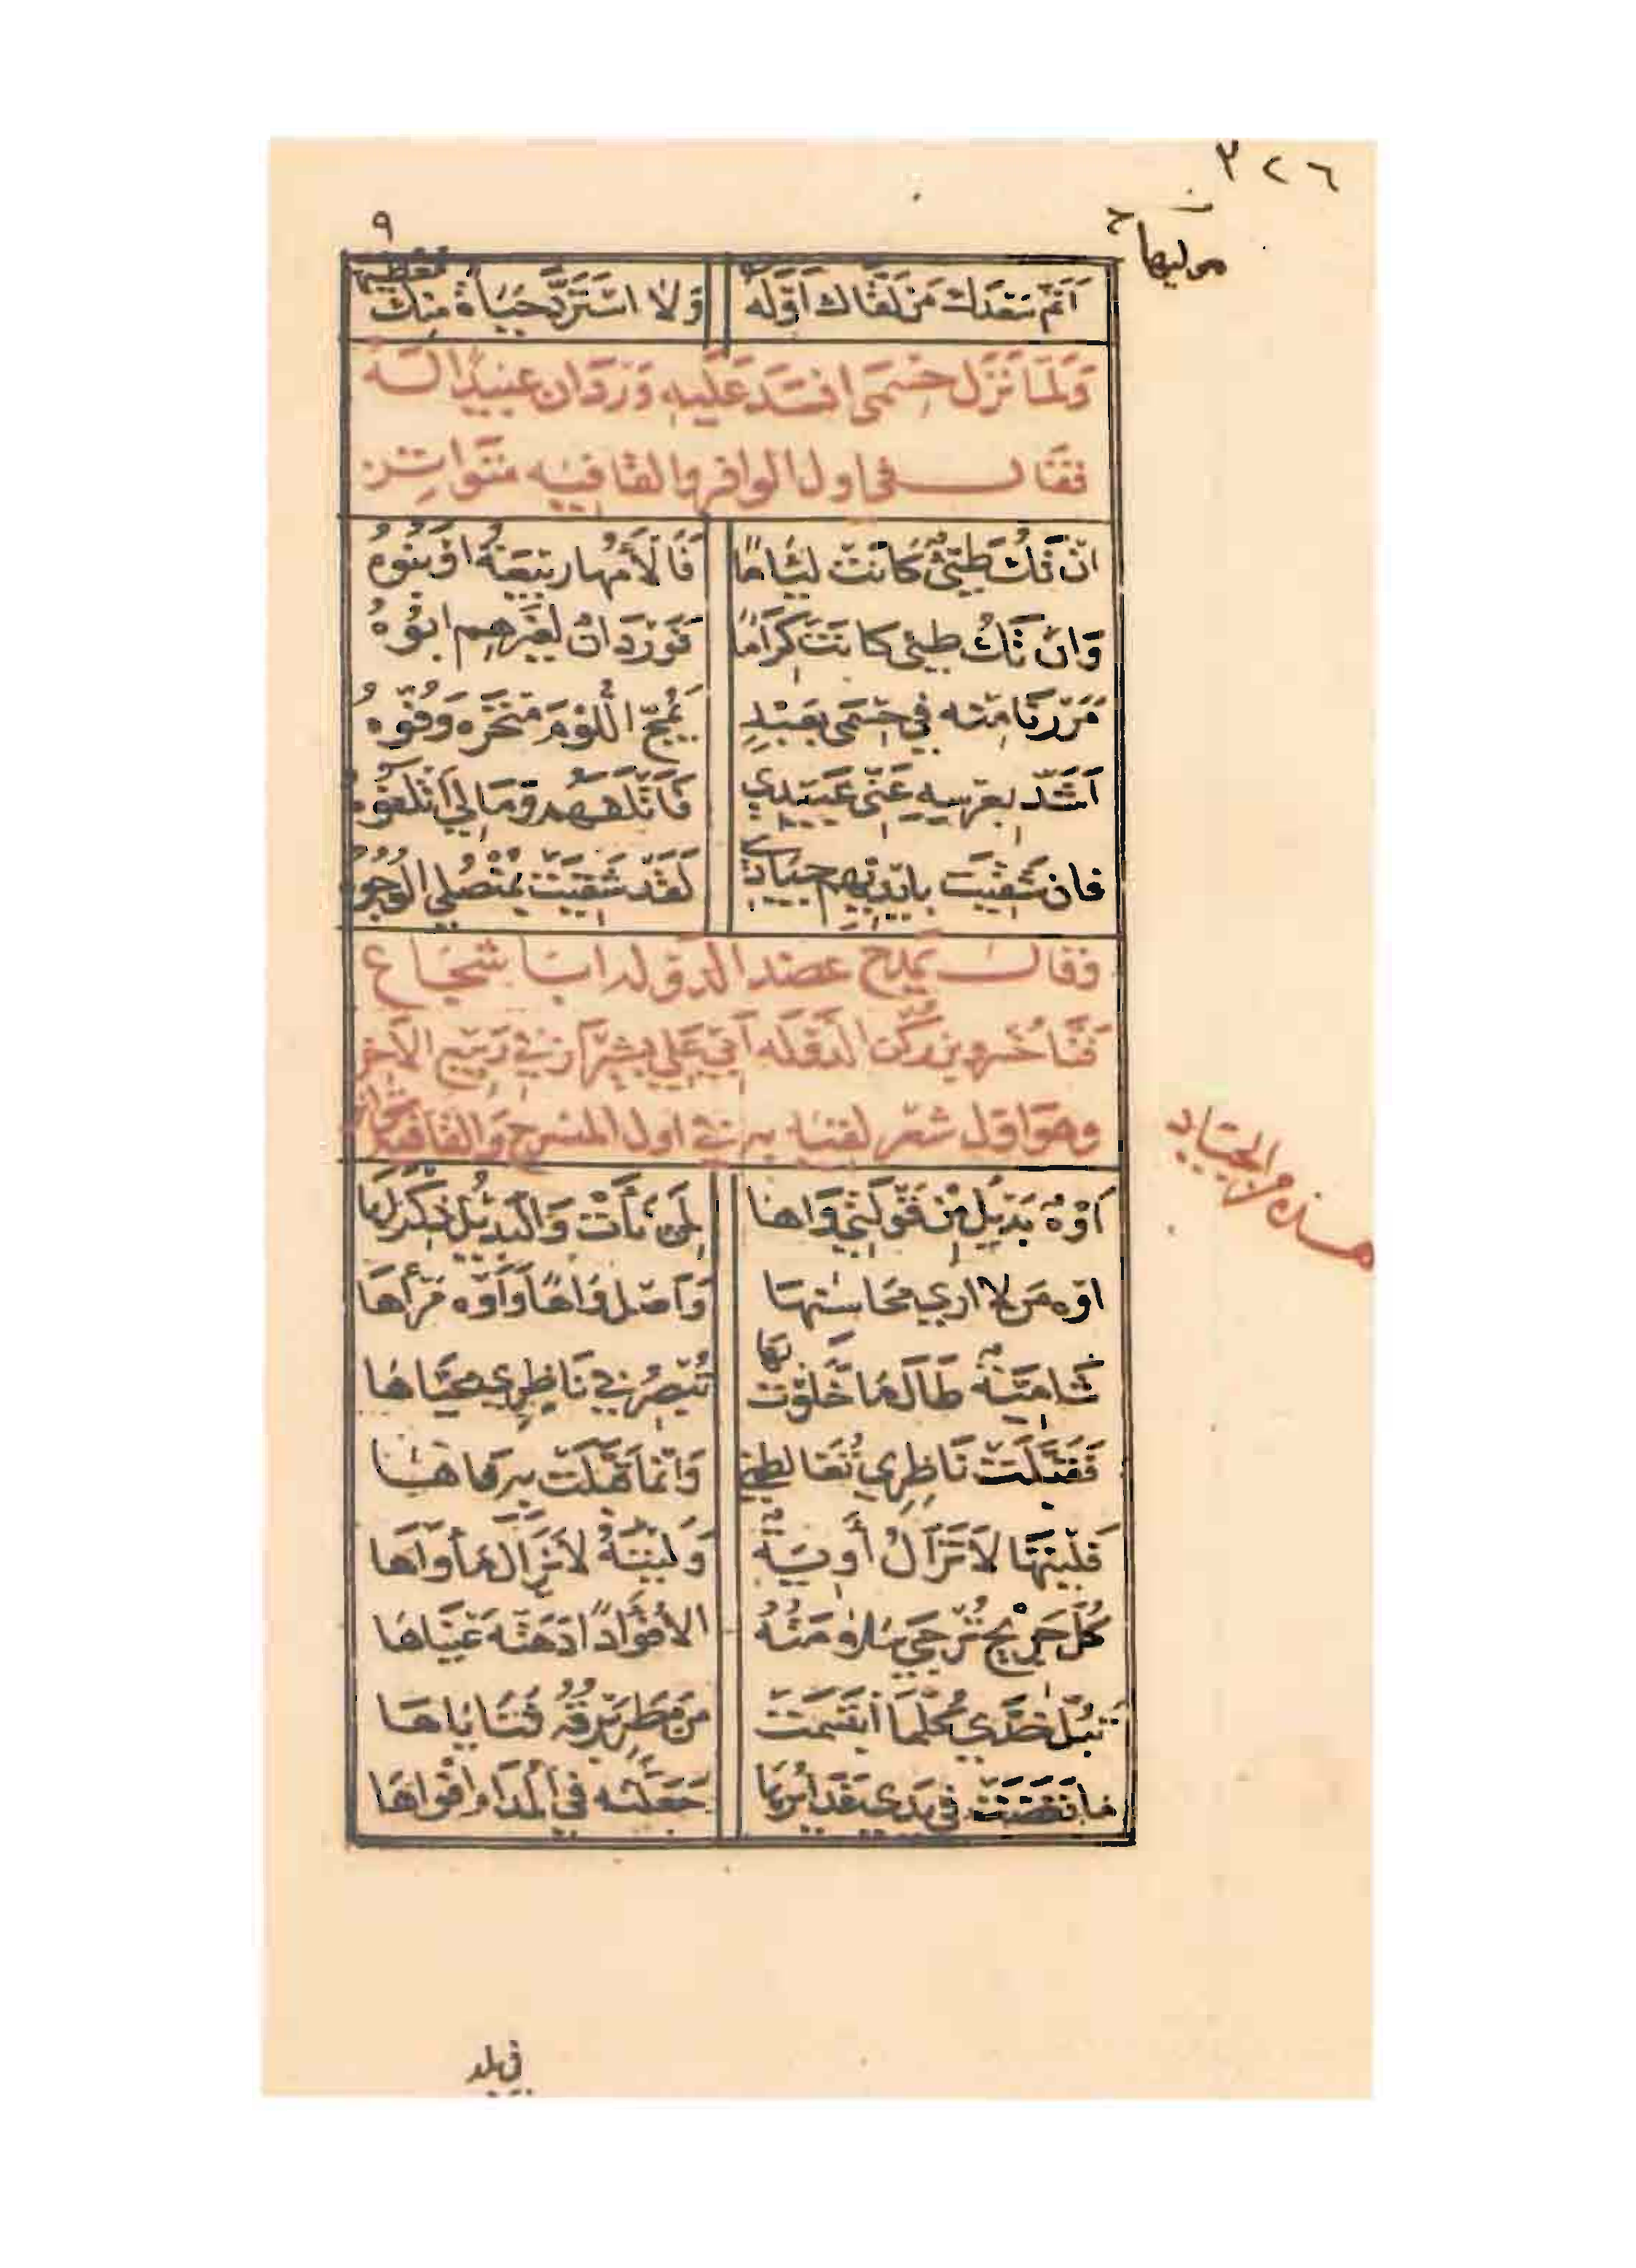 ٣٢٦
موليها
٩
أنم بسعدك من لقاك أوله ولا استرد حياة منك معطيها
ولما نزل حسمى افسد عليه وردان عبيده
فقال في اول الوافر والقافيه متواتر
ان تك طيئ كانت لئاما فألأمها ربيعة او بنوه
وان تك طيئ كانت كراما فوردان لغيرهم ابوه
مررنا منه في حسمى بعبد يمج اللؤم منخره وفوه
أشذ بعرسه عني عبيدي فأتلفهم ومالي أتلفوه
فان شقيت بايديهم جيادي لقد شقيت بمنصلي الوجوه
وقال يمدح عضد الدوله ابا شجاع
فنا خسرو بن ركن الدوله أبي علي بشيراز في ربيع الاخر
وهو اول شعر لقيه به في اول المنسرح والقافيه متواتر
هذه من الجياد
أوه بديل من قولتي واها لمن نأت والبديل ذكراها
اوه من لا ارى محاسنها وأصل واها وأوه مرآها
شامية طالما خلوت بها تبصر في ناظري محياها
فقبلت ناظري تغالطني وانما قبلت به فاها
فليتها لا تزال أوية وليته لا يزال مأواها
كل جريح ترجى سلامته الا فؤادا دهته عيناها
تبل خدي كلما ابتسمت من مطر برقه ثناياها
ما نفضت في يدي غدائرها جعلته في المدام افواها
في بلد